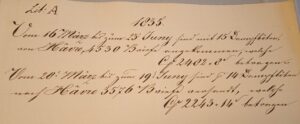 Lit. A
1835.
Vom 16 März bis zum 25 Juny sind mit 15 Dampfböten
von Hâvre, 4530 Briefe angekommen, welche
C𝑓 2402. 8 betragen.
Vom 20 März bis zum 19 Juny sind p 14 Dampfböten
nach Hâvre 5576 Briefe versandt, welche
C𝑓 2243. 14 betragen